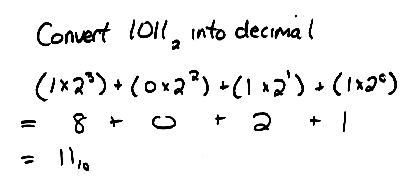 Convert 1011₂ into decimal
(1×2³) + (0×2²) + (1×2¹) + (1×2⁰)
= 8 + 0 + 2 + 1
= 11₁₀